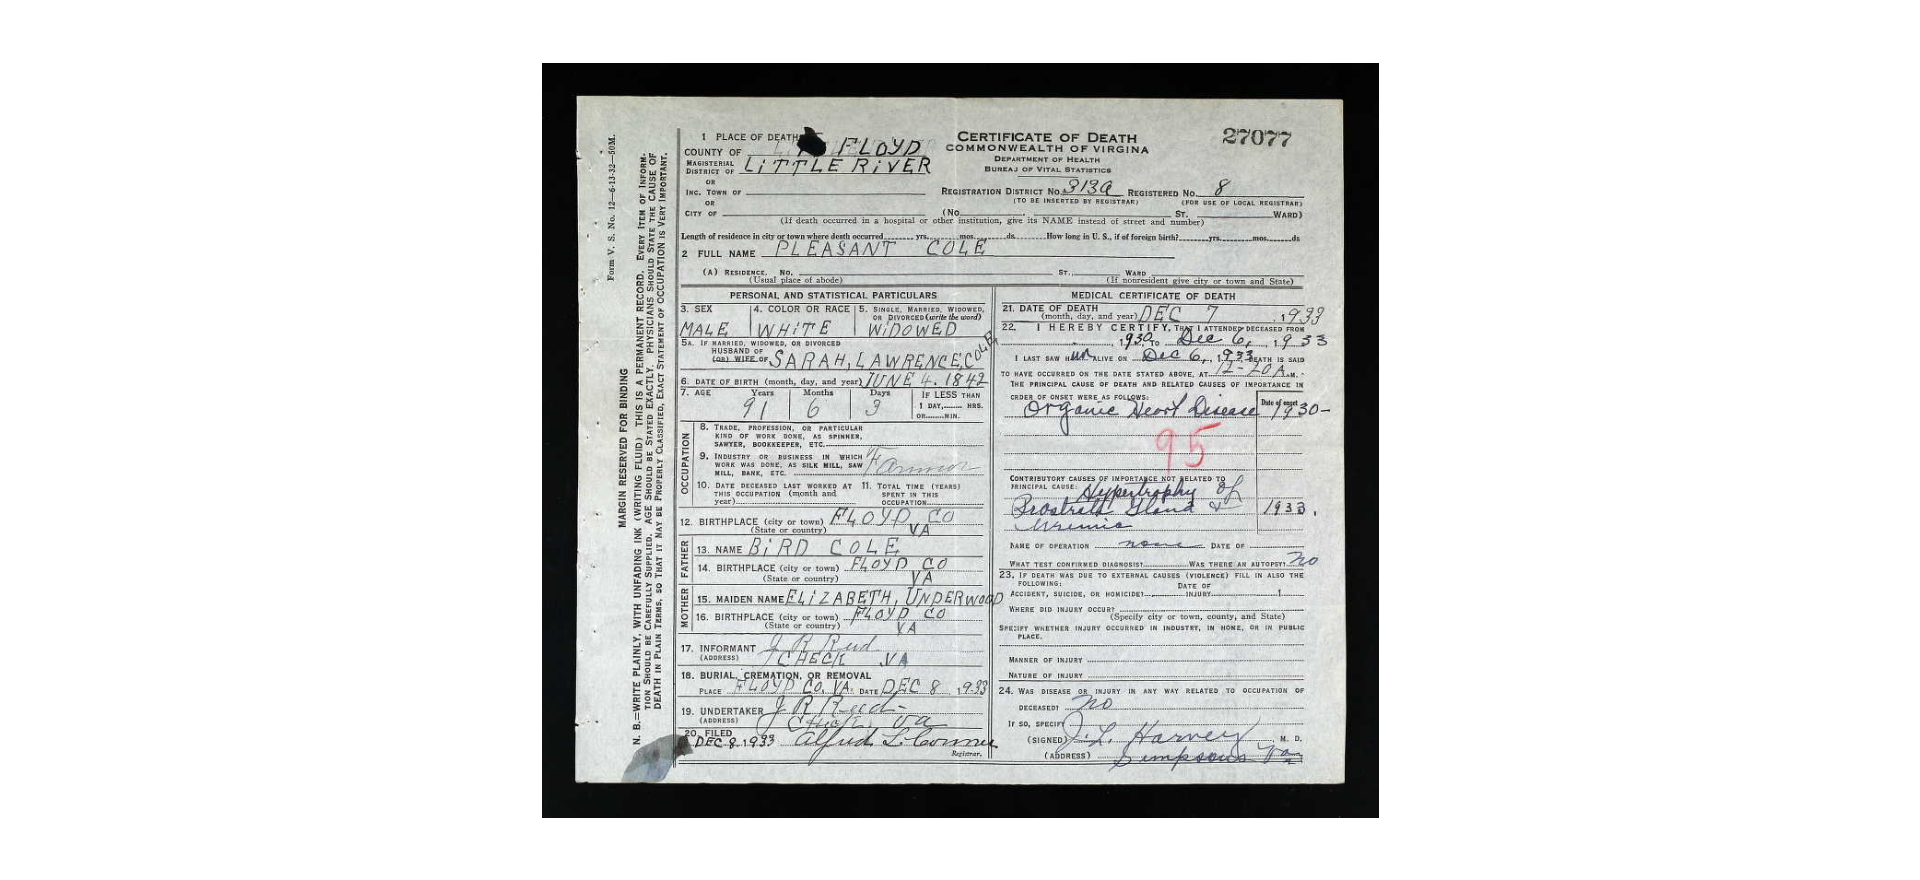 Form V. S. No. 12—6-13-32—50M.
MARGIN RESERVED FOR BINDING
N. B.—WRITE PLAINLY, WITH UNFADING INK (WRITING FLUID) THIS IS A PERMANENT RECORD. EVERY ITEM OF INFORM-
TION SHOULD BE CAREFULLY SUPPLIED. AGE SHOULD BE STATED EXACTLY. PHYSICIANS SHOULD STATE THE CAUSE OF
DEATH IN PLAIN TERMS, SO THAT IT MAY BE PROPERLY CLASSIFIED, EXACT STATEMENT OF OCCUPATION IS VERY IMPORTANT.
1 PLACE OF DEATH
COUNTY OF FLOYD
MAGISTERIAL DISTRICT OF LITTLE RIVER
OR
INC. TOWN OF
OR
CITY OF
CERTIFICATE OF DEATH
COMMONWEALTH OF VIRGINA
DEPARTMENT OF HEALTH
BUREAU OF VITAL STATISTICS
27077
REGISTRATION DISTRICT No. 313a REGISTERED No. 8
(TO BE INSERTED BY REGISTRAR) (FOR USE OF LOCAL REGISTRAR)
(No. ST. WARD)
(If death occurred in a hospital or other institution, give its NAME instead of street and number)
Length of residence in city or town where death occurred yrs. mos. ds. How long in U. S., if of foreign birth? yrs. mos. ds
2 FULL NAME PLEASANT COLE
(A) RESIDENCE. No. ST., WARD
(Usual place of abode) (If nonresident give city or town and State)
PERSONAL AND STATISTICAL PARTICULARS
3. SEX 4. COLOR OR RACE 5. SINGLE, MARRIED, WIDOWED, OR DIVORCED (write the word)
MALE WHITE WIDOWED
5A. IF MARRIED, WIDOWED, OR DIVORCED
HUSBAND OF
(OR) WIFE OF SARAH, LAWRENCE, COLE
6. DATE OF BIRTH (month, day, and year) JUNE 4. 1842
7. AGE Years Months Days IF LESS THAN
91 6 3 1 DAY, HRS.
OR MIN.
OCCUPATION
8. TRADE, PROFESSION, OR PARTICULAR
KIND OF WORK DONE, AS SPINNER,
SAWYER, BOOKKEEPER, ETC.
9. INDUSTRY OR BUSINESS IN WHICH
WORK WAS DONE, AS SILK MILL, SAW
MILL, BANK, ETC.
10. DATE DECEASED LAST WORKED AT
THIS OCCUPATION (month and
year)
11. TOTAL TIME (YEARS)
SPENT IN THIS
OCCUPATION
12. BIRTHPLACE (city or town) FLOYD CO
(State or country) VA
FATHER
13. NAME BIRD COLE
14. BIRTHPLACE (city or town) FLOYD CO
(State or country) VA
MOTHER
15. MAIDEN NAME ELIZABETH, UNDERWOOD
16. BIRTHPLACE (city or town) FLOYD CO
(State or country) VA
17. INFORMANT J R Reed
(ADDRESS) CHECK VA
18. BURIAL, CREMATION, OR REMOVAL
PLACE FLOYD CO. VA. DATE DEC 8, 1933
19. UNDERTAKER J R Reed
(ADDRESS) Check, Va
20. FILED
DEC 8, 1933 Alfred L. Conner
Registrar.
MEDICAL CERTIFICATE OF DEATH
21. DATE OF DEATH
(month, day, and year) DEC 7, 1933
22. I HEREBY CERTIFY, THAT I ATTENDED DECEASED FROM
, 1930, TO Dec 6, 1933
I LAST SAW HIM ALIVE ON Dec 6, 1933 DEATH IS SAID
TO HAVE OCCURRED ON THE DATE STATED ABOVE, AT 12-20 A.M.
THE PRINCIPAL CAUSE OF DEATH AND RELATED CAUSES OF IMPORTANCE IN
ORDER OF ONSET WERE AS FOLLOWS: Date of onset
Organic Heart Disease 1930-
95
CONTRIBUTORY CAUSES OF IMPORTANCE NOT RELATED TO
PRINCIPAL CAUSE: Hypertrophy of
Prostrate Gland & 1933.
Uremia
NAME OF OPERATION none DATE OF
WHAT TEST CONFIRMED DIAGNOSIS? WAS THERE AN AUTOPSY? No
23. IF DEATH WAS DUE TO EXTERNAL CAUSES (VIOLENCE) FILL IN ALSO THE
FOLLOWING: DATE OF
ACCIDENT, SUICIDE, OR HOMICIDE? INJURY 1
WHERE DID INJURY OCCUR?
(Specify city or town, county, and State)
SPECIFY WHETHER INJURY OCCURRED IN INDUSTRY, IN HOME, OR IN PUBLIC
PLACE.
MANNER OF INJURY
NATURE OF INJURY
24. WAS DISEASE OR INJURY IN ANY WAY RELATED TO OCCUPATION OF
DECEASED? No
IF SO, SPECIFY
(SIGNED) J. L. Harvey, M. D.
(ADDRESS) Simpsons Va